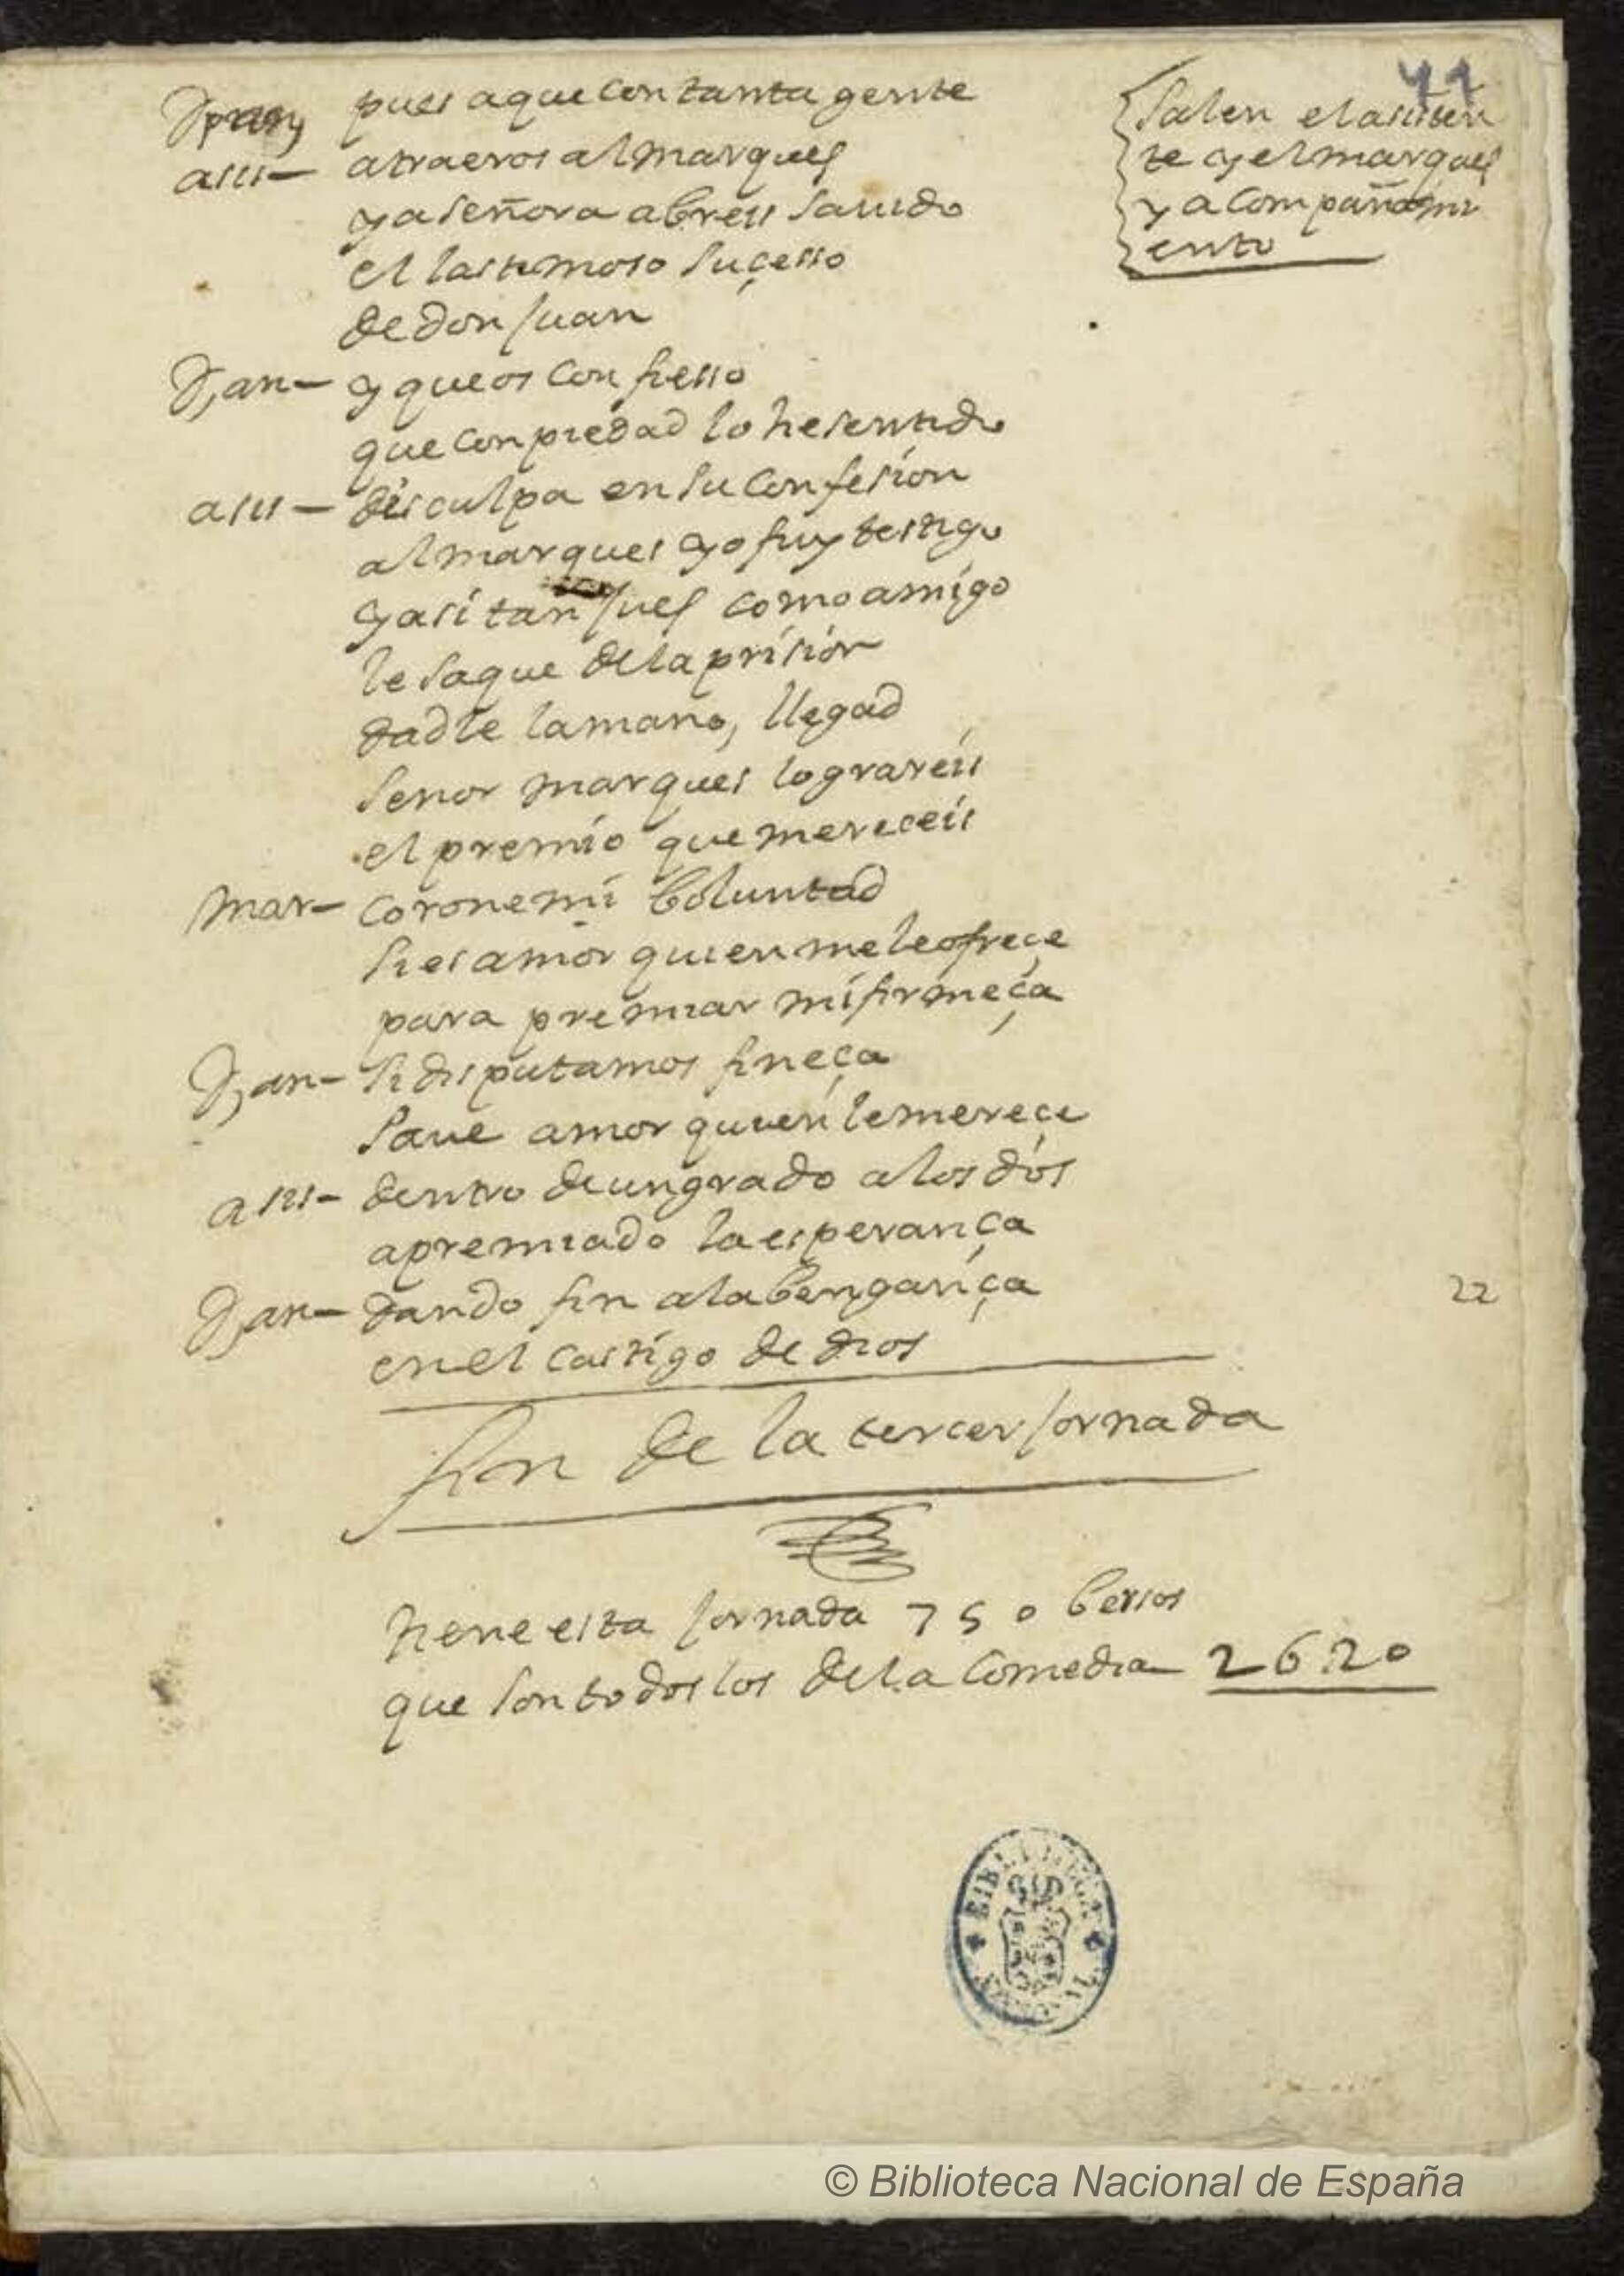 44
pues a que con tanta gente
asis- atraeros al marques
ya señora abreis sauido
el lastimoso suçesso
de don Juan
D,an- y que os confiesso
que con piedad lo he sentido
asis- disculpa en su confesion
al marques yo fuy testigo
y asi tan Juez como amigo
le saque de la prision
dadle la mano, llegad
senor marques lograreis
el premio que mereceis
mar- corone mi boluntad
si es amor quien me le ofreçe
para premiar mi firmeça
D,an- si disputamos fineça
saue amor quien le mereçe
asis- dentro de un grado a los dos
a premiado la esperança
D,an- dando fin a la bengança
en el castigo de dios
fin de la tercer Jornada
tiene esta Jornada 750 bersos
que son todos los de la Comedia 2620
salen el asisten
te y el marques
y acompañami
ento
22
BIBLIOTECA NACIONAL
© Biblioteca Nacional de España